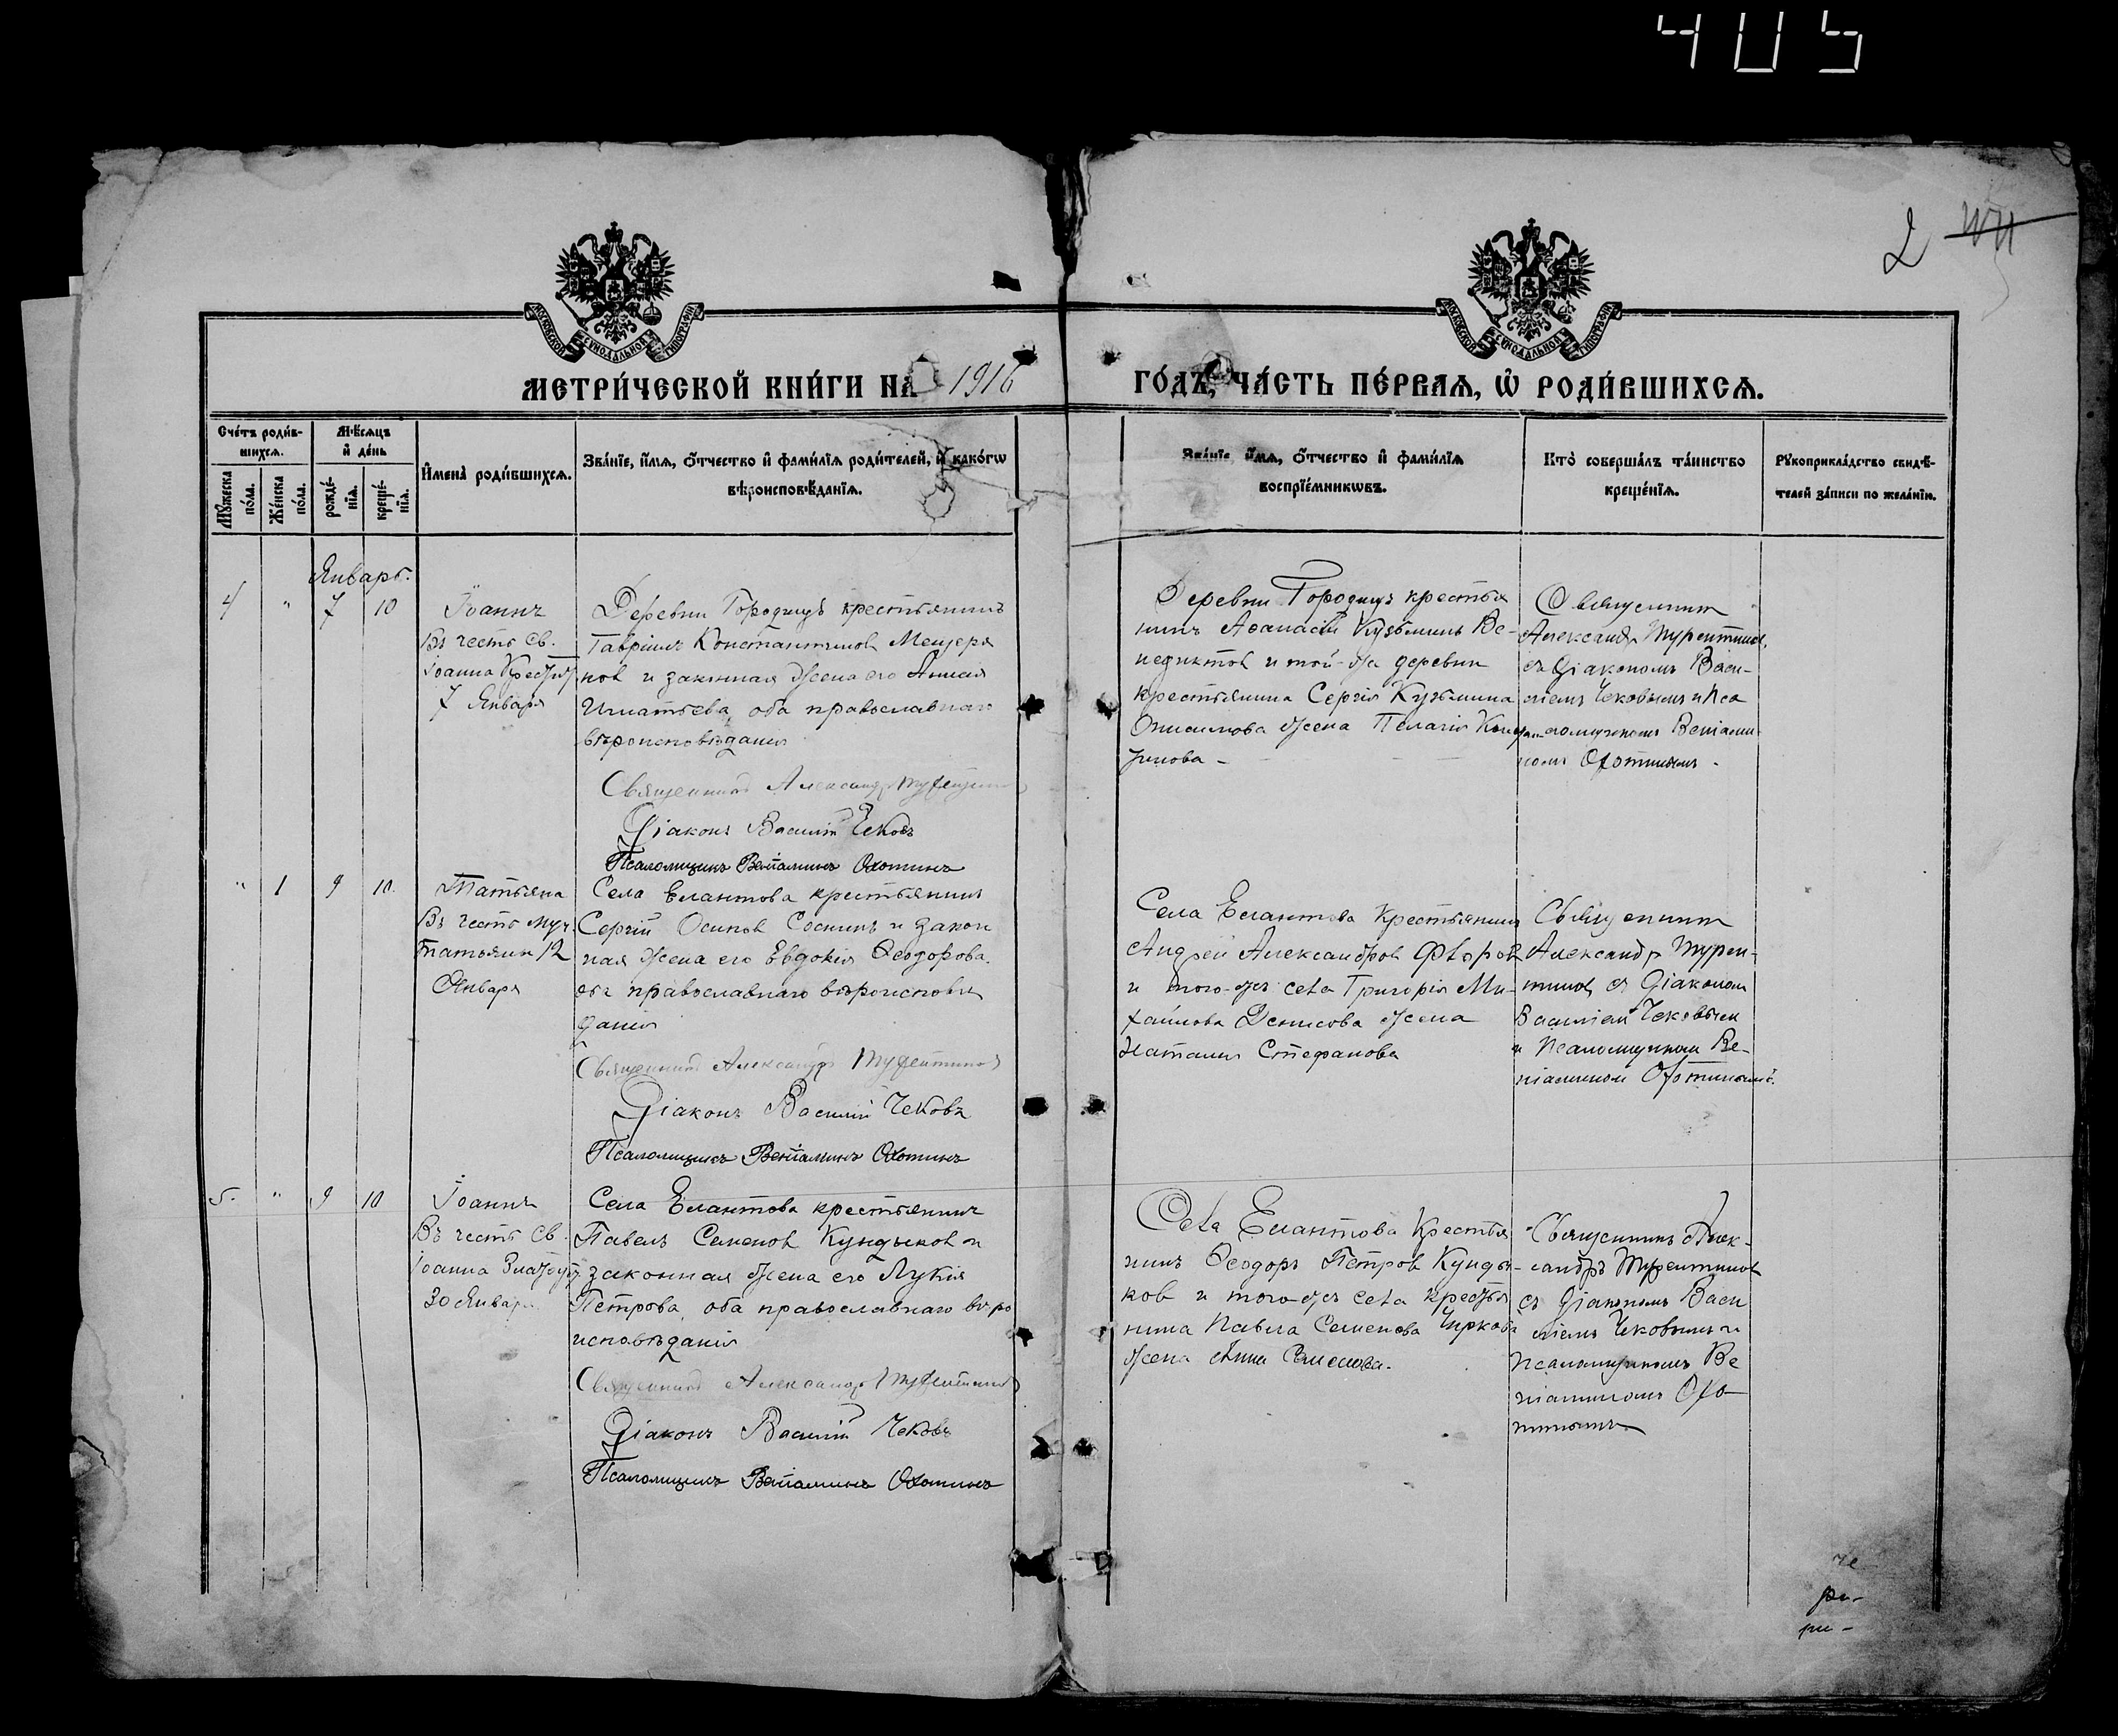 405
2
МОСКОВСКОЙ СУНОДАЛЬНОЙ ТИПОГРАФІИ
МОСКОВСКОЙ СУНОДАЛЬНОЙ ТИПОГРАФІИ
МЕТРИ́ЧЕСКОЙ КНИ́ГИ НА 1916
ГО́ДЪ, ЧА́СТЬ ПЕ́РВАѦ, Ѡ РОДИ́ВШИХСѦ.
Сче́тъ роди́в-
шихсѧ.
Мꙋ́жеска по́ла.
Же́нска по́ла.
Мѣ́сѧцъ
и҆ де́нь
рожде́-
нїѧ.
креще́-
нїѧ.
И҆мена̀ роди́вшихсѧ.
Зва́нїе, и҆́мѧ, ѻ҆́тчество и҆ фами́лїѧ роди́телей, и҆ како́гѡ
вѣроисповѣ́данїѧ.
Зва́нїе, и҆́мѧ, ѻ҆́тчество и҆ фами́лїѧ
воспрїе́мникѡвъ.
Кто̀ соверша́лъ та́инство
креще́нїѧ.
Рꙋкоприкла́дство свидѣ́-
телей за́писи по жела́нїю.
Январь.
4 " 7 10
Іоаннъ
Въ честь св.
Іоанна Крестит.
7 Января
Деревни Городищъ крестьянинъ
Гавріилъ Константиновъ Мещеря
ковъ и законная жена его Анисия
Игнатьева, оба православнаго
вѣроисповѣданія
Священникъ Александръ
Діаконъ Василій Чековъ
Псаломщикъ Веніаминъ Охотинъ
Деревни Городищъ крестья
нинъ Аѳанасій Кузьминъ Ве-
недиктовъ и той-же деревни
крестьянина Сергія Кузьмина
жена Пелагія
Священникъ
Александръ
съ Діакономъ Васи-
ліемъ Чековымъ и Пса
ломщикомъ Веніами-
номъ Охотинымъ.
" 1 9 10.
Татьяна
Въ честь муч.
Татьяны 12
Января
Села Елантова крестьянинъ
Сергій Осиповъ Соснинъ и закон
ная жена его Евдокія Ѳеодорова.
оба православнаго вѣроисповѣ
данія
Священникъ Александръ
Діаконъ Василій Чековъ
Псаломщикъ Веніаминъ Охотинъ
Села Елантова крестьянинъ
Андрей Александровъ Фроровъ
и того-же села Григорія Ми-
хайлова Денисова жена
Наталія Стефанова
Священникъ
Александръ
съ Діакономъ
Василіемъ Чековымъ
и Псаломщикомъ Ве-
ніаминомъ Охотинымъ.
5. " 9 10
Іоаннъ
Въ честь св.
Іоанна Златоуст.
30 Января
Села Елантова крестьянинъ
Павелъ Семеновъ Кундыковъ и
законная жена его Лукія
Петрова, оба православнаго вѣро
исповѣданія
Священникъ Александръ
Діаконъ Василій Чековъ
Псаломщикъ Веніаминъ Охотинъ
Села Елантова крестья
нинъ Ѳеодоръ Петровъ Кунды-
ковъ и того-же села крестья
нина Павла Семенова Чиркова
жена Анна Семенова.
Священникъ Алек-
сандръ
съ Діакономъ Васи
ліемъ Чековымъ и
Псаломщикомъ Ве
ніаминомъ Охо-
тинымъ